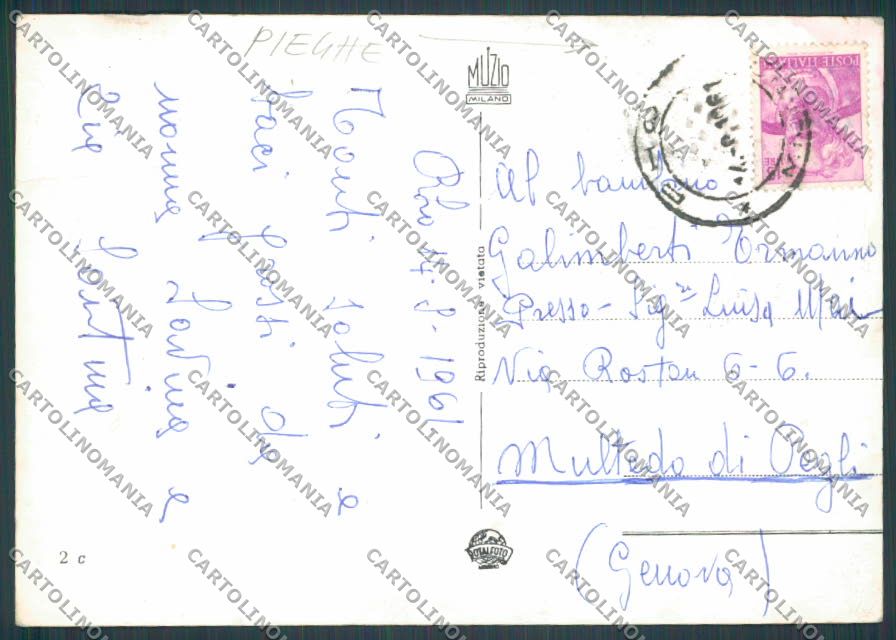 PIEGHE
MUZIO
MILANO
Rho 14-8-1961
Tanti saluti e
baci grossi da
nonna Lavina e
zia Santina
Riproduzione vietata
POSTE ITALIANE
Al bambino
Galimberti Ermanno
Presso - Sig.ra Luisa Mai
Via Rostan 6-6.
Multedo di Pegli
(Genova)
TOTALFOTO
2 c
CARTOLINOMANIA